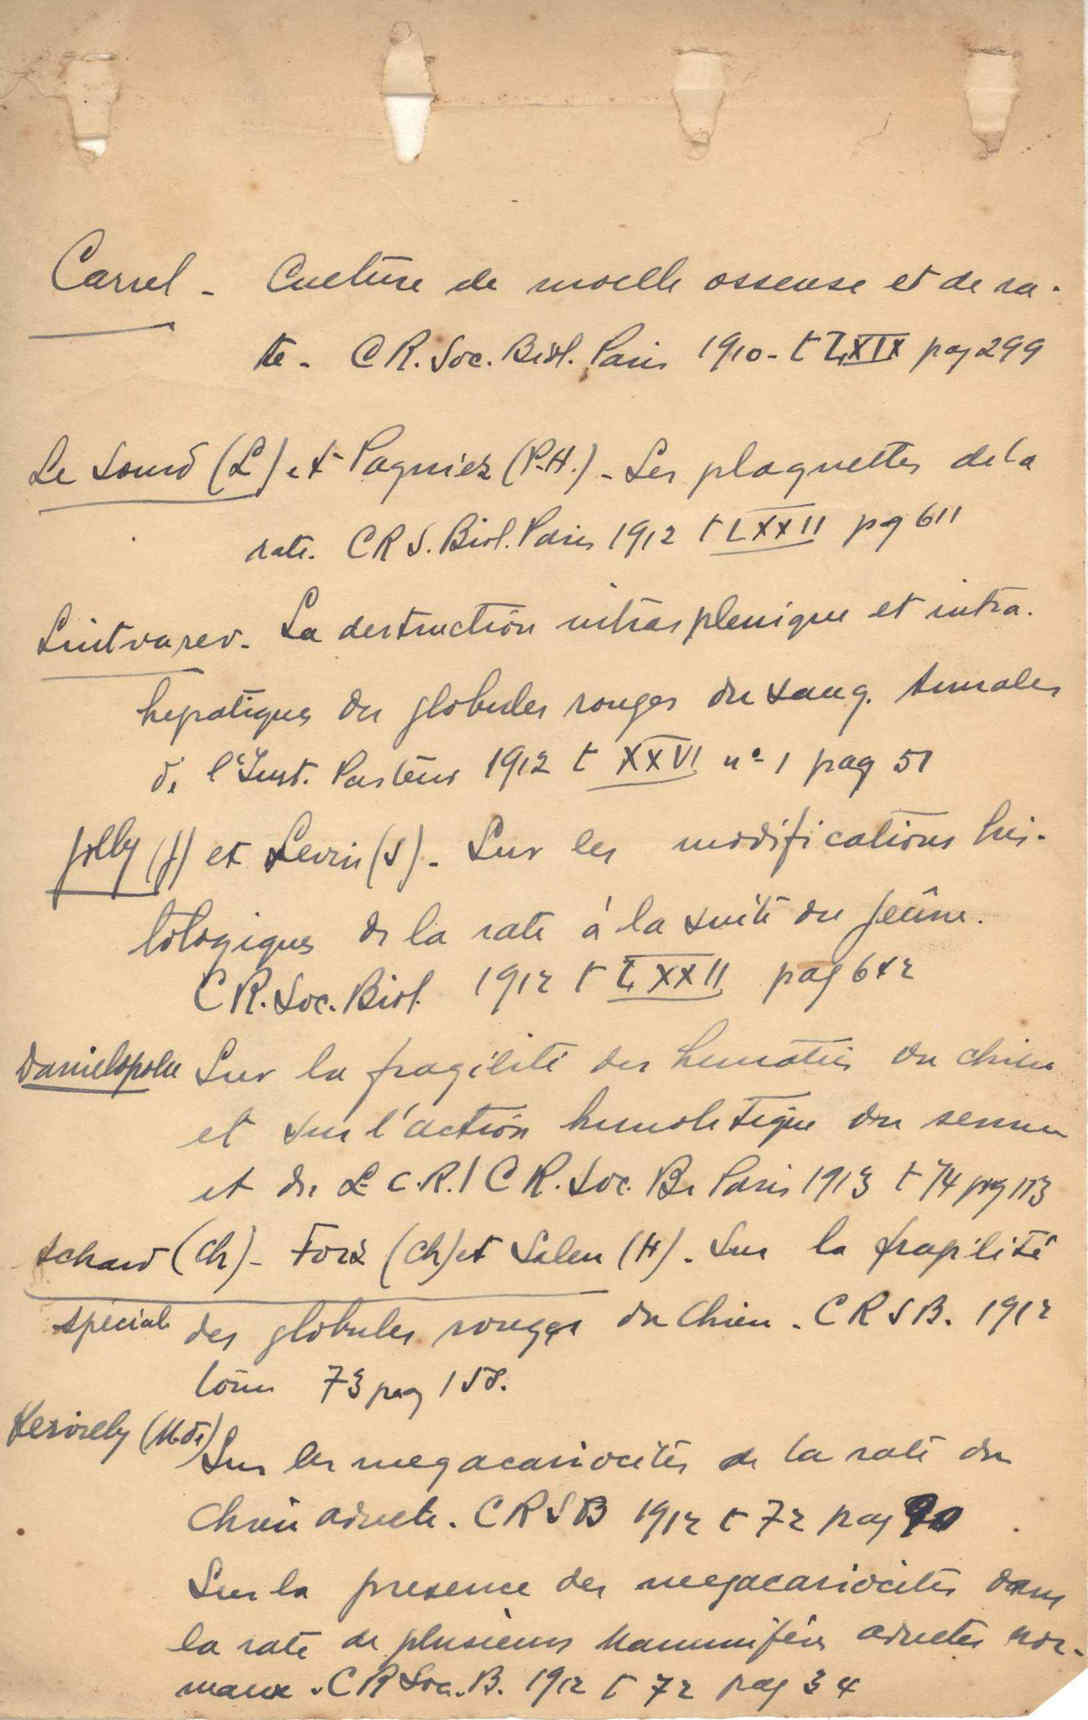 Carrel - Culture de moelle osseuse et de ra-
te - C R. Soc. Biol. Paris 1910 - t LXIX pag 299
Le Sourd (L) et Pagniez (P.H.) - Les plaquettes de la
rate. C R S. Biol. Paris 1912 t LXXII pag 611
Lintvarev. La destruction intrasplenique et intra-
hepatique des globules rouges du sang. Annales
de l'Inst. Pasteur 1912 t XXVI nº 1 pag 51
Jolly (J) et Levin (S) - Sur les modifications his-
tologiques de la rate à la suite du jeûne.
C R. Soc. Biol. 1912 t LXXII pag 642
Danielopolu Sur la fragilité des hematies du chien
et sur l'action hemolitique du serum
et du L. C. R. / C R. Soc. Bi Paris 1913 t 74 pag 113
Achard (Ch) - Foix (Ch) et Salen (H) - Sur la fragilité
speciale des globules rouges du chien. C R S B. 1912
tome 73 pag 158.
(M. de) Sur les megacariocites de la rate du
chien adulte. C R S B 1912 t 72 pag 90
Sur la presence des megacariocites dans
la rate de plusieurs Mammifères adultes nor-
maux. C R Soc. B. 1912 t 72 pag 34